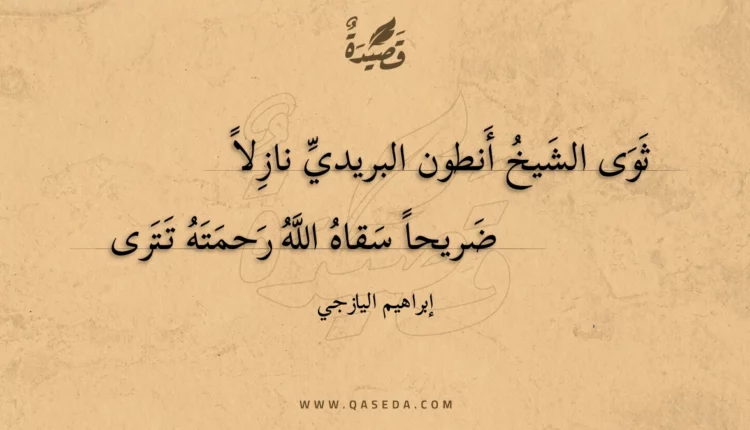 قَصِيدَةٌ
ثَوَى الشَيخُ أَنطون البريديِّ نازِلاً
ضَريحاً سَقاهُ اللَّهُ رَحمَتَهُ تَترَى
إبراهيم اليازجي
WWW.QASEDA.COM